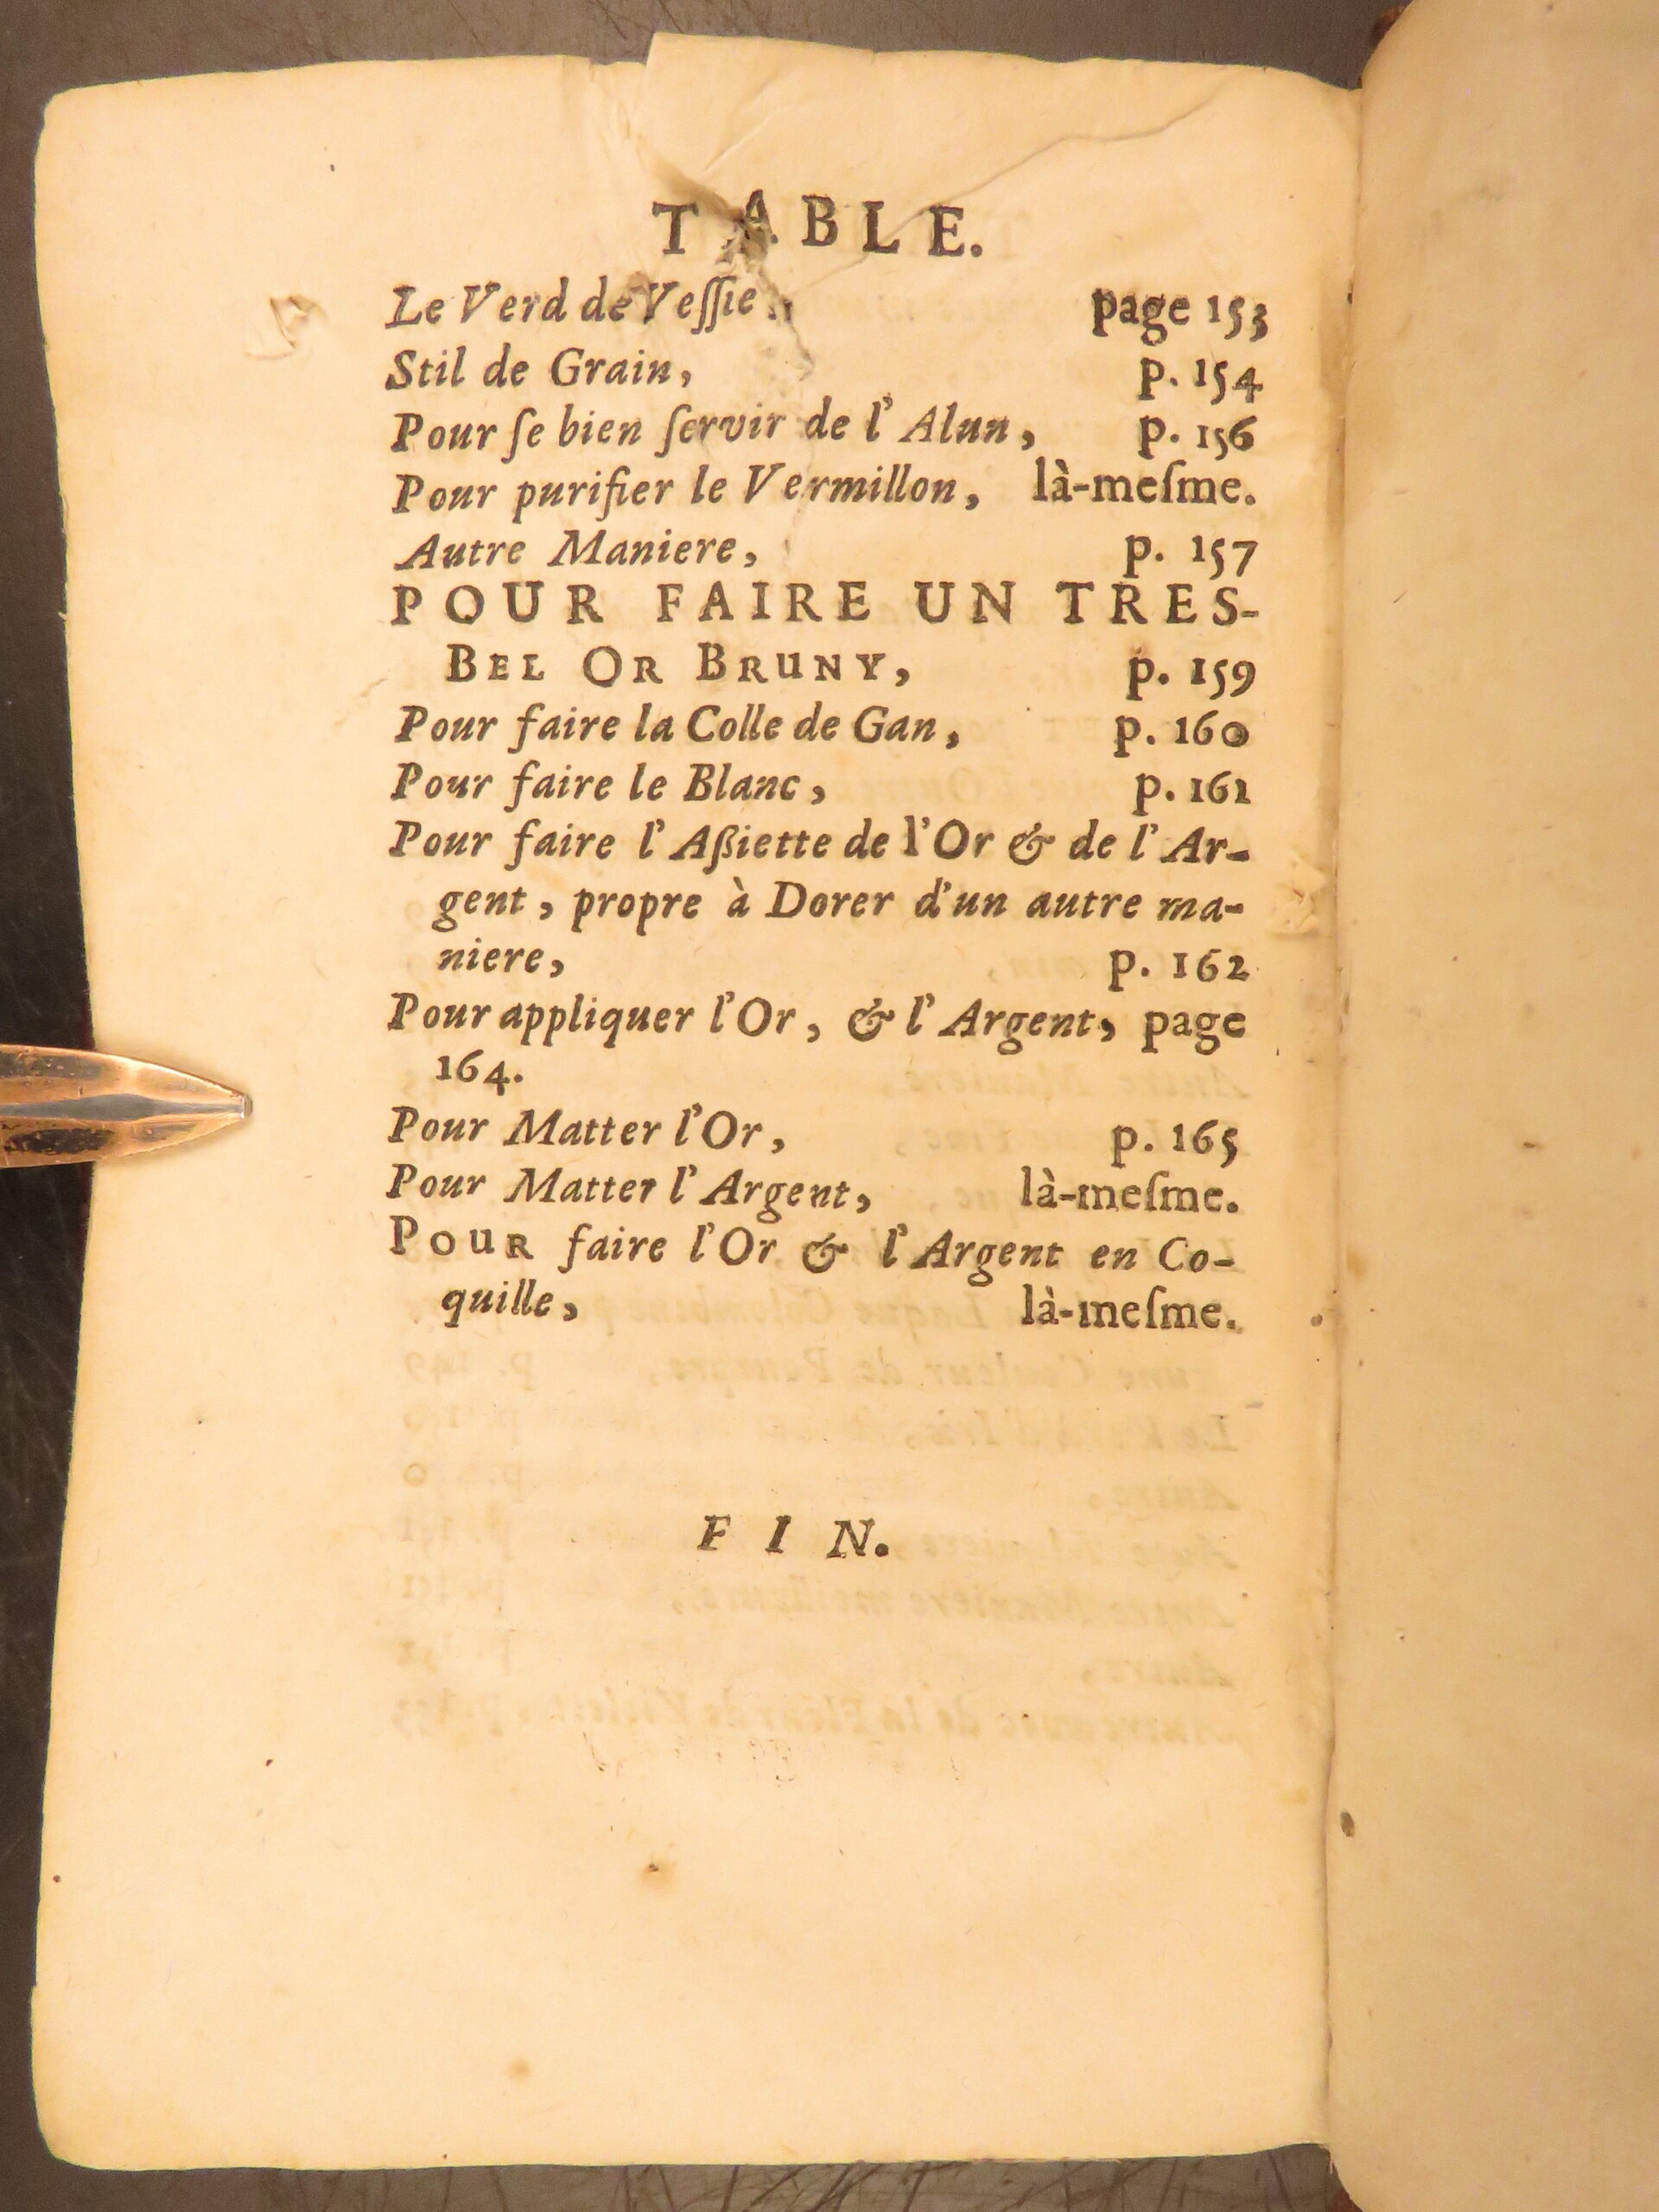 TABLE.
Le Verd de Veſſie, page 153
Stil de Grain, p. 154
Pour ſe bien ſervir de l'Alun, p. 156
Pour purifier le Vermillon, là-meſme.
Autre Maniere, p. 157
POUR FAIRE UN TRES-
BEL OR BRUNY, p. 159
Pour faire la Colle de Gan, p. 160
Pour faire le Blanc, p. 161
Pour faire l'Aßiette de l'Or & de l'Ar-
gent, propre à Dorer d'un autre ma-
niere, p. 162
Pour appliquer l'Or, & l'Argent, page
164.
Pour Matter l'Or, p. 165
Pour Matter l'Argent, là-meſme.
POUR faire l'Or & l'Argent en Co-
quille, là-meſme.
FIN.